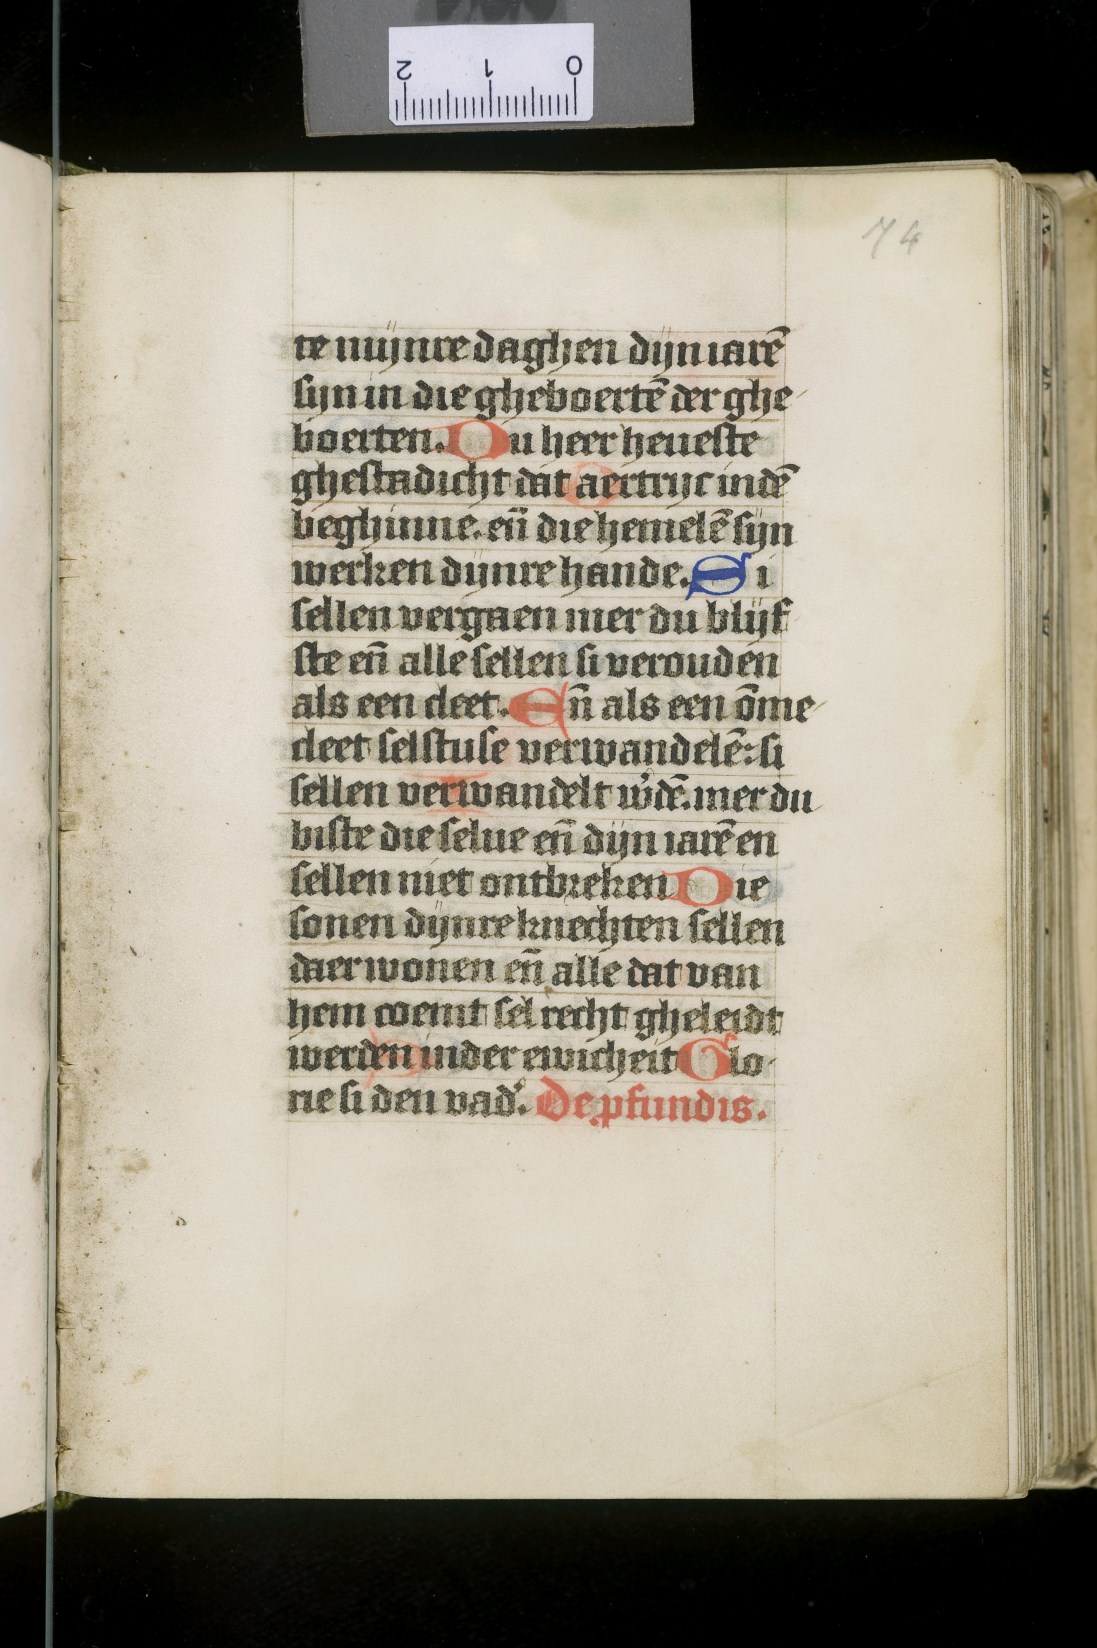 2 1 0
74
te mijnre daghen dijn iarē
sijn in die gheboertē der ghe
boerten. Du heer heueste
ghestadicht dat aertrijc indē
beghinne. eñ die hemelē sijn
werken dijnre hande. Si
sellen vergaen mer du blijf
ste eñ alle sellen si verouden
als een cleet. Eñ als een ōme
cleet selstuse verwandelē: si
sellen verwandelt w'dē. mer du
biste die selue eñ dijn iarē en
sellen niet ontbreken Die
sonen dijnre knechten sellen
daer wonen eñ alle dat van
hem coemt sel recht gheleidt
werden inder ewicheit Glo
rie si den vad'. De pfundis.